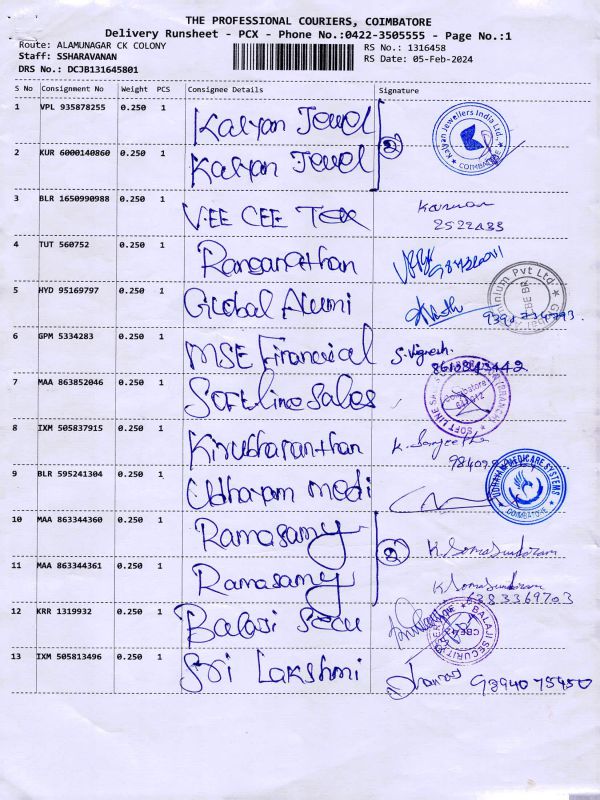 THE PROFESSIONAL COURIERS, COIMBATORE
Delivery Runsheet - PCX - Phone No.:0422-3505555 - Page No.:1
Route: ALAMUNAGAR CK COLONY
RS No.: 1316458
Staff: SSHARAVANAN
RS Date: 05-Feb-2024
DRS No.: DCJB131645801
S No Consignment No Weight PCS Consignee Details Signature
1 VPL 935878255 0.250 1 Kalyan Jewel
Kalyan Jewellers India Ltd., COIMBATORE
2 KUR 6000140860 0.250 1 Kalyan Jewel
2
3 BLR 1650990988 0.250 1 VEE CEE Tex
Kannan
2522433
4 TUT 560752 0.250 1 Ranganathan
5 HYD 95169797 0.250 1 Global Alumi
Global Aluminium Pvt Ltd
6 GPM 5334283 0.250 1 MSE Financial S. Vignesh.
7 MAA 863852046 0.250 1 Softline Sales
Coimbatore
8 IXM 505837915 0.250 1 Kirubharanthan K. Sangeetha
9 BLR 595241304 0.250 1 Udhayam medi
UDHAYAM MEDICARE SYSTEMS COIMBATORE
10 MAA 863344360 0.250 1 Ramasamy
2 K. Somasundaram
11 MAA 863344361 0.250 1 Ramasamy K Somasundaram
6383369703
12 KRR 1319932 0.250 1 Balaji Secu
BALAJI SECURIT
13 IXM 505813496 0.250 1 Sri Lakshmi 9894075450